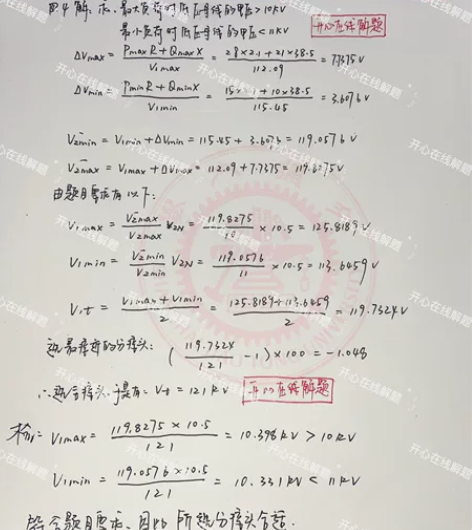 解：求：最大负荷时低压母线的电压>10kV
最小负荷时低压母线的电压<11kV
开心在线解题
ΔVmax = (PmaxR + QmaxX)/V1max = (28×2.1 + 21×38.5)/112.09 = 7.7375V
ΔVmin = (PminR + QminX)/V1min = (15×2.1 + 10×38.5)/115.45 = 3.6076V
V2min = V1min + ΔVmin = 115.45 + 3.6076 = 119.0576V
V2max = V1max + ΔVmax = 112.09 + 7.7375 = 119.8275V
由题目要求有以下：
V1max = V2max/V2max V2N = 119.8275/10 × 10.5 = 125.8189V
V1min = V2min/V2min V2N = 119.0576/11 × 10.5 = 113.6459V
V1t = (V1max + V1min)/2 = (125.8189 + 113.6459)/2 = 119.7324V
选最接近的分接头：(119.7324/121 - 1) × 100 = -1.048
∴选分接头，于是有：Vt = 121kV
开心在线解题
检：V1max = (119.8275 × 10.5)/121 = 10.398kV > 10kV
V1min = (119.0576 × 10.5)/121 = 10.331kV < 11kV
符合题目要求，因此所选分接头合适．
开心在线解题